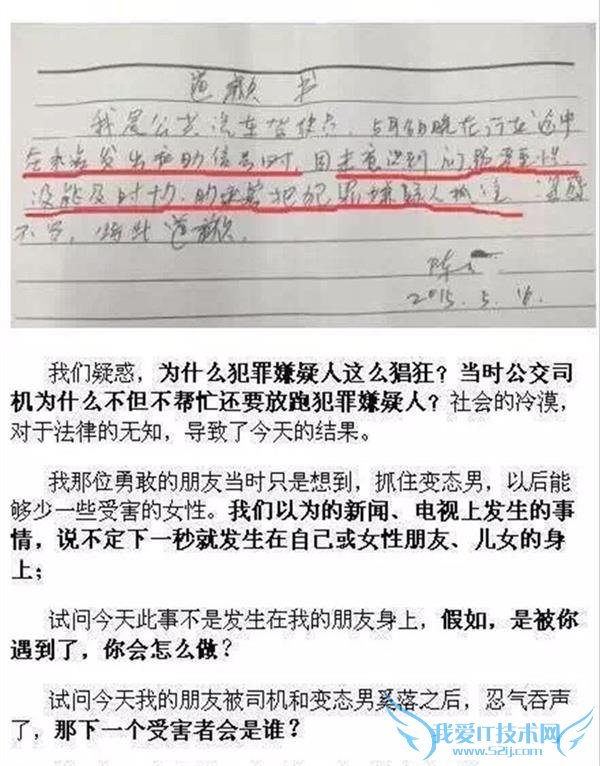 道歉书
我是公共汽车驾驶员，5月 日晚在行车途中
在乘客发出求助信号时，因未意识到问题严重性，
没能及时 助 害 把犯罪嫌疑人抓住
不 ，特此道歉。
陈
2015.5.16.
我们疑惑，为什么犯罪嫌疑人这么猖狂？当时公交司
机为什么不但不帮忙还要放跑犯罪嫌疑人？社会的冷漠，
对于法律的无知，导致了今天的结果。
我那位勇敢的朋友当时只是想到，抓住变态男，以后能
够少一些受害的女性。我们以为的新闻、电视上发生的事
情，说不定下一秒就发生在自己或女性朋友、儿女的身
上；
试问今天此事不是发生在我的朋友身上，假如，是被你
遇到了，你会怎么做？
试问今天我的朋友被司机和变态男奚落之后，忍气吞声
了，那下一个受害者会是谁？
我爱IT技术网
www.52ij.com